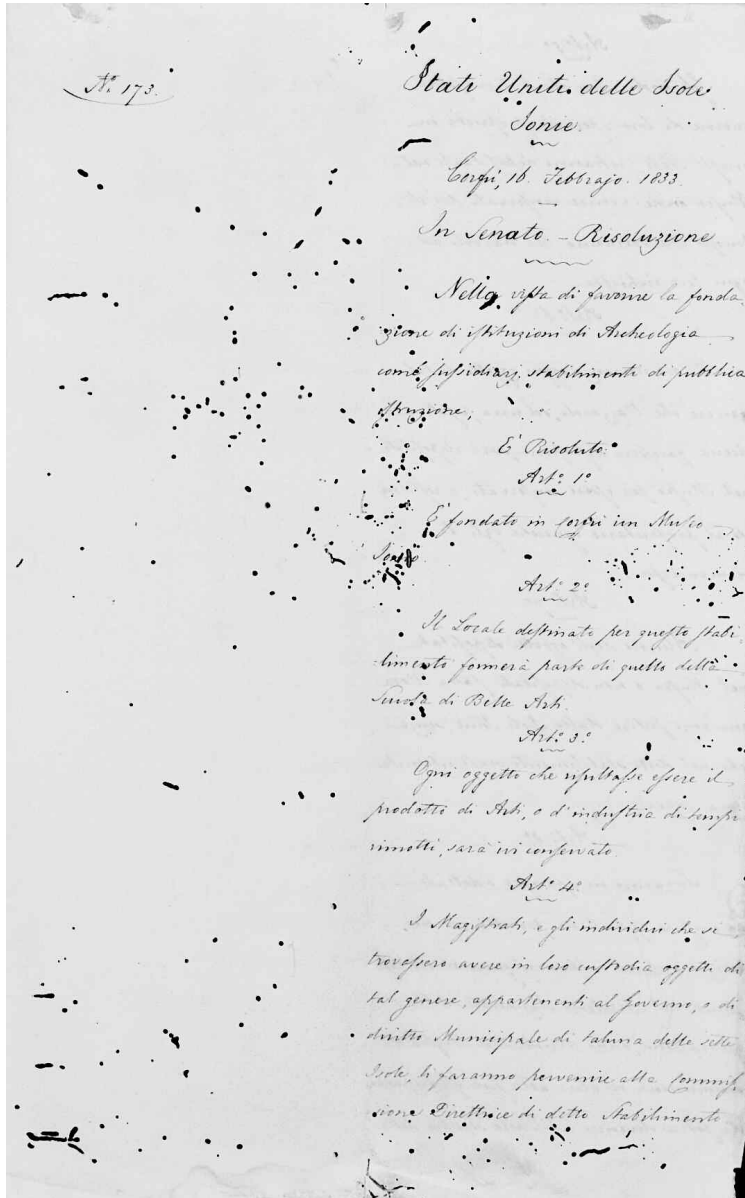 N.° 173.
Stati Uniti delle Isole
Ionie.
Corfù, 16. Febbrajo. 1833.
In Senato. – Risoluzione
Nella vista di favorire la fonda-
zione di istituzioni di Archeologia
come sussidiarj stabilimenti di pubblica
istruzione;
È Risoluto:
Art.° 1.°
È fondato in Corfù un Museo
Jonio.
Art.° 2.°
Il Locale destinato per questo stabi-
limento formerà parte di quello della
Scuola di Belle Arti.
Art.° 3.°
Ogni oggetto che risultasse essere il
prodotto di Arti, o d'industria di tempi
rimotti, sarà ivi conservato.
Art.° 4.°
I Magistrati, e gli individui che si
trovassero avere in loro custodia oggetti di
tal genere, appartenenti al Governo, o di
diritto Municipale di taluna delle sette
Isole, li faranno pervenire alla Commis-
sione Direttrice di detto Stabilimento